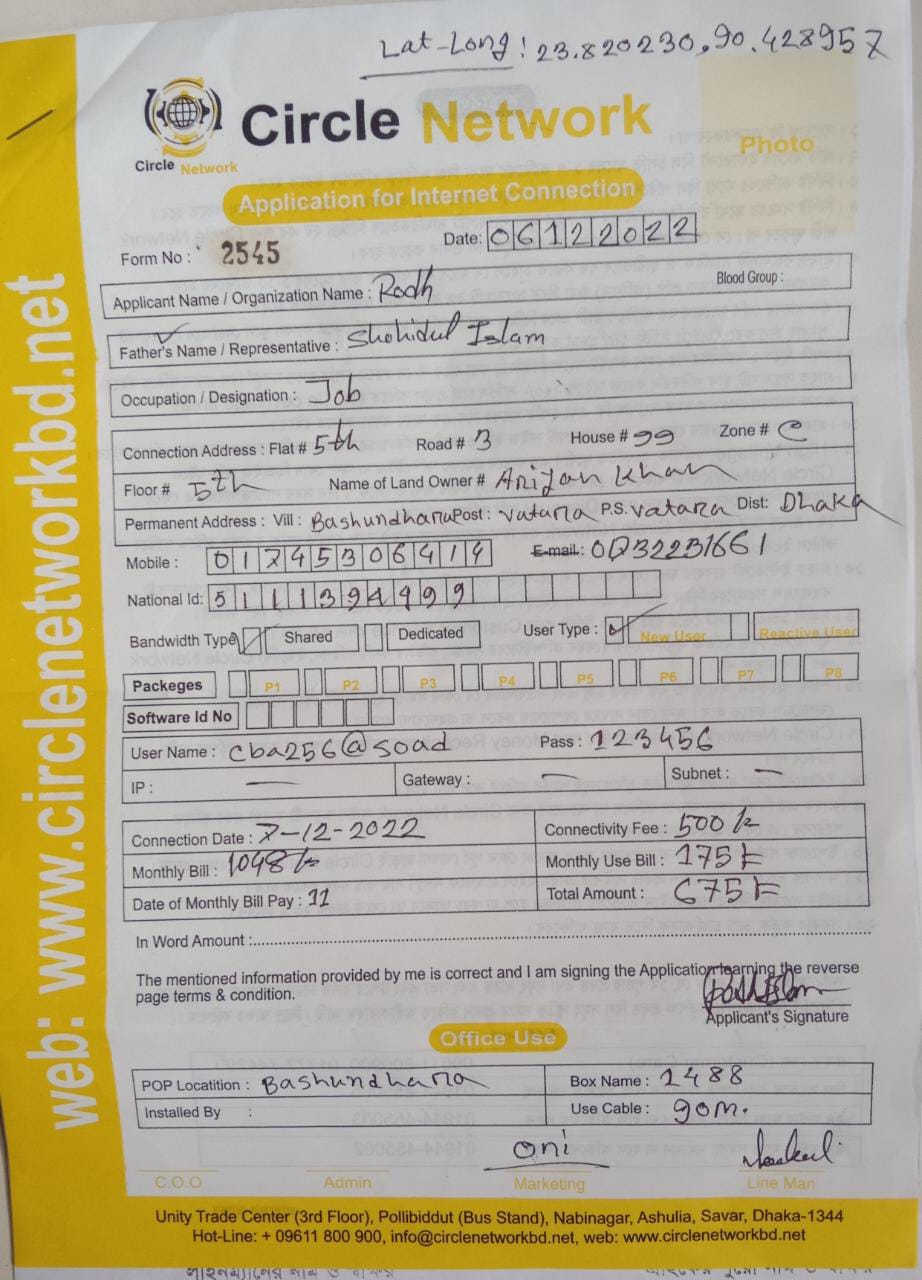 Lat-Long: 23.820230,90.428957
Circle Network
Circle Network
Photo
Application for Internet Connection
Form No : 2545
Date: 06122022
Applicant Name / Organization Name : Rodh
Blood Group :
Father's Name / Representative : Shohidul Islam
Occupation / Designation : Job
Connection Address : Flat # 5th Road # 3 House # 99 Zone # C
Floor # 5th Name of Land Owner # Ariyan Khan
Permanent Address : Vill : Bashundhara Post : vatara P.S. vatara Dist: Dhaka
Mobile : 01745306414 E-mail:
National Id: 5111394999
Bandwidth Type Shared Dedicated User Type : New User Reactive User
Packeges P1 P2 P3 P4 P5 P6 P7 P8
Software Id No
User Name : cba256@soad Pass : 123456
IP : — Gateway : — Subnet : —
Connection Date : 7-12-2022 Connectivity Fee : 500/=
Monthly Bill : 1048/= Monthly Use Bill : 175/=
Date of Monthly Bill Pay : 11 Total Amount : 675/=
In Word Amount :
The mentioned information provided by me is correct and I am signing the Application learning the reverse
page terms & condition.
Applicant's Signature
Office Use
POP Locatition : Bashundhara Box Name : 1488
Installed By : Use Cable : 90m.
oni
C.O.O Admin Marketing Line Man
Unity Trade Center (3rd Floor), Pollibiddut (Bus Stand), Nabinagar, Ashulia, Savar, Dhaka-1344
Hot-Line: + 09611 800 900, info@circlenetworkbd.net, web: www.circlenetworkbd.net
web: www.circlenetworkbd.net